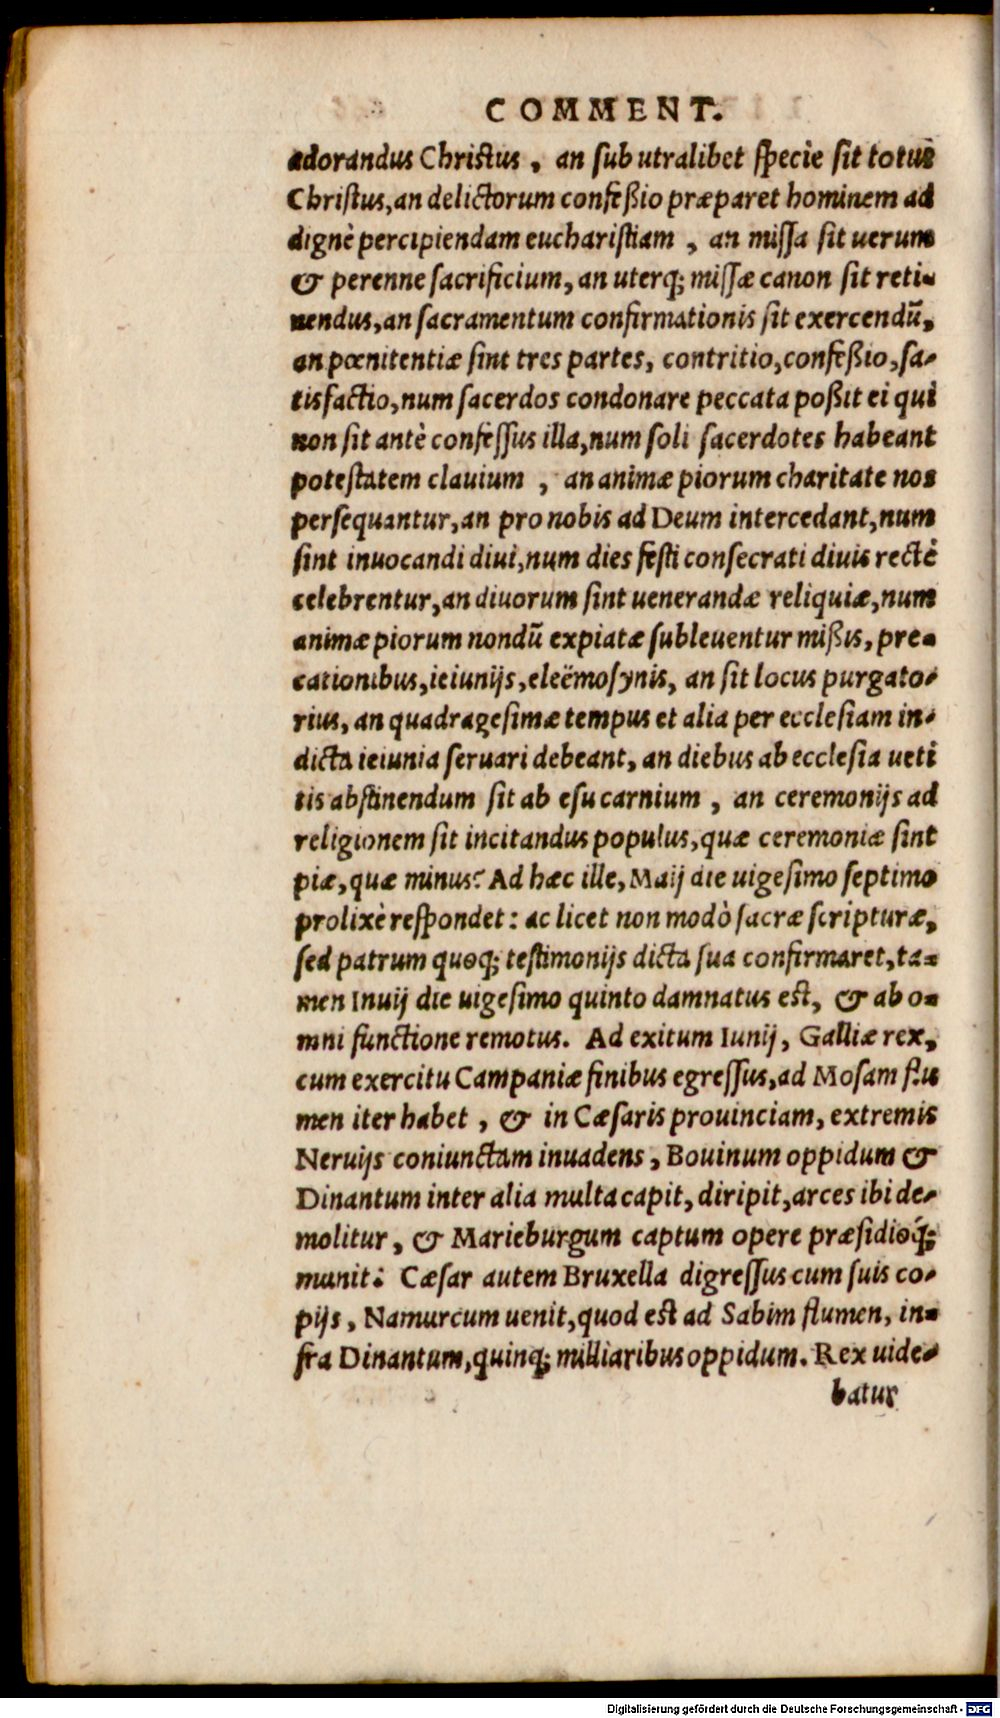 COMMENT.
adorandus Christus, an sub utralibet specie sit totus
Christus, an delictorum confeßio præparet hominem ad
dignè percipiendam eucharistiam, an missa sit uerum
& perenne sacrificium, an uterq; missæ canon sit reti-
nendus, an sacramentum confirmationis sit exercendū,
an pœnitentiæ sint tres partes, contritio, confeßio, sa-
tisfactio, num sacerdos condonare peccata poßit ei qui
non sit antè confessus illa, num soli sacerdotes habeant
potestatem clauium, an animæ piorum charitate nos
persequantur, an pro nobis ad Deum intercedant, num
sint inuocandi diui, num dies festi consecrati diuis rectè
celebrentur, an diuorum sint uenerandæ reliquiæ, num
animæ piorum nondū expiatæ subleuentur mißis, pre-
cationibus, ieiunijs, eleëmosynis, an sit locus purgato-
rius, an quadragesimæ tempus et alia per ecclesiam in-
dicta ieiunia seruari debeant, an diebus ab ecclesia ueti
tis abstinendum sit ab esu carnium, an ceremonijs ad
religionem sit incitandus populus, quæ ceremoniæ sint
piæ, quæ minus? Ad hæc ille, Maij die uigesimo septimo
prolixè respondet: ac licet non modò sacræ scripturæ,
sed patrum quoq; testimonijs dicta sua confirmaret, ta-
men Inuij die uigesimo quinto damnatus est, & ab o-
mni functione remotus. Ad exitum Iunij, Galliæ rex,
cum exercitu Campaniæ finibus egressus, ad Mosam flu
men iter habet, & in Cæsaris prouinciam, extremis
Neruijs coniunctam inuadens, Bouinum oppidum &
Dinantum inter alia multa capit, diripit, arces ibi de-
molitur, & Marieburgum captum opere præsidioq́;
munit: Cæsar autem Bruxella digressus cum suis co-
pijs, Namurcum uenit, quod est ad Sabim flumen, in-
fra Dinantum, quinq; milliaribus oppidum. Rex uide-
batur
Digitalisierung gefördert durch die Deutsche Forschungsgemeinschaft - DFG